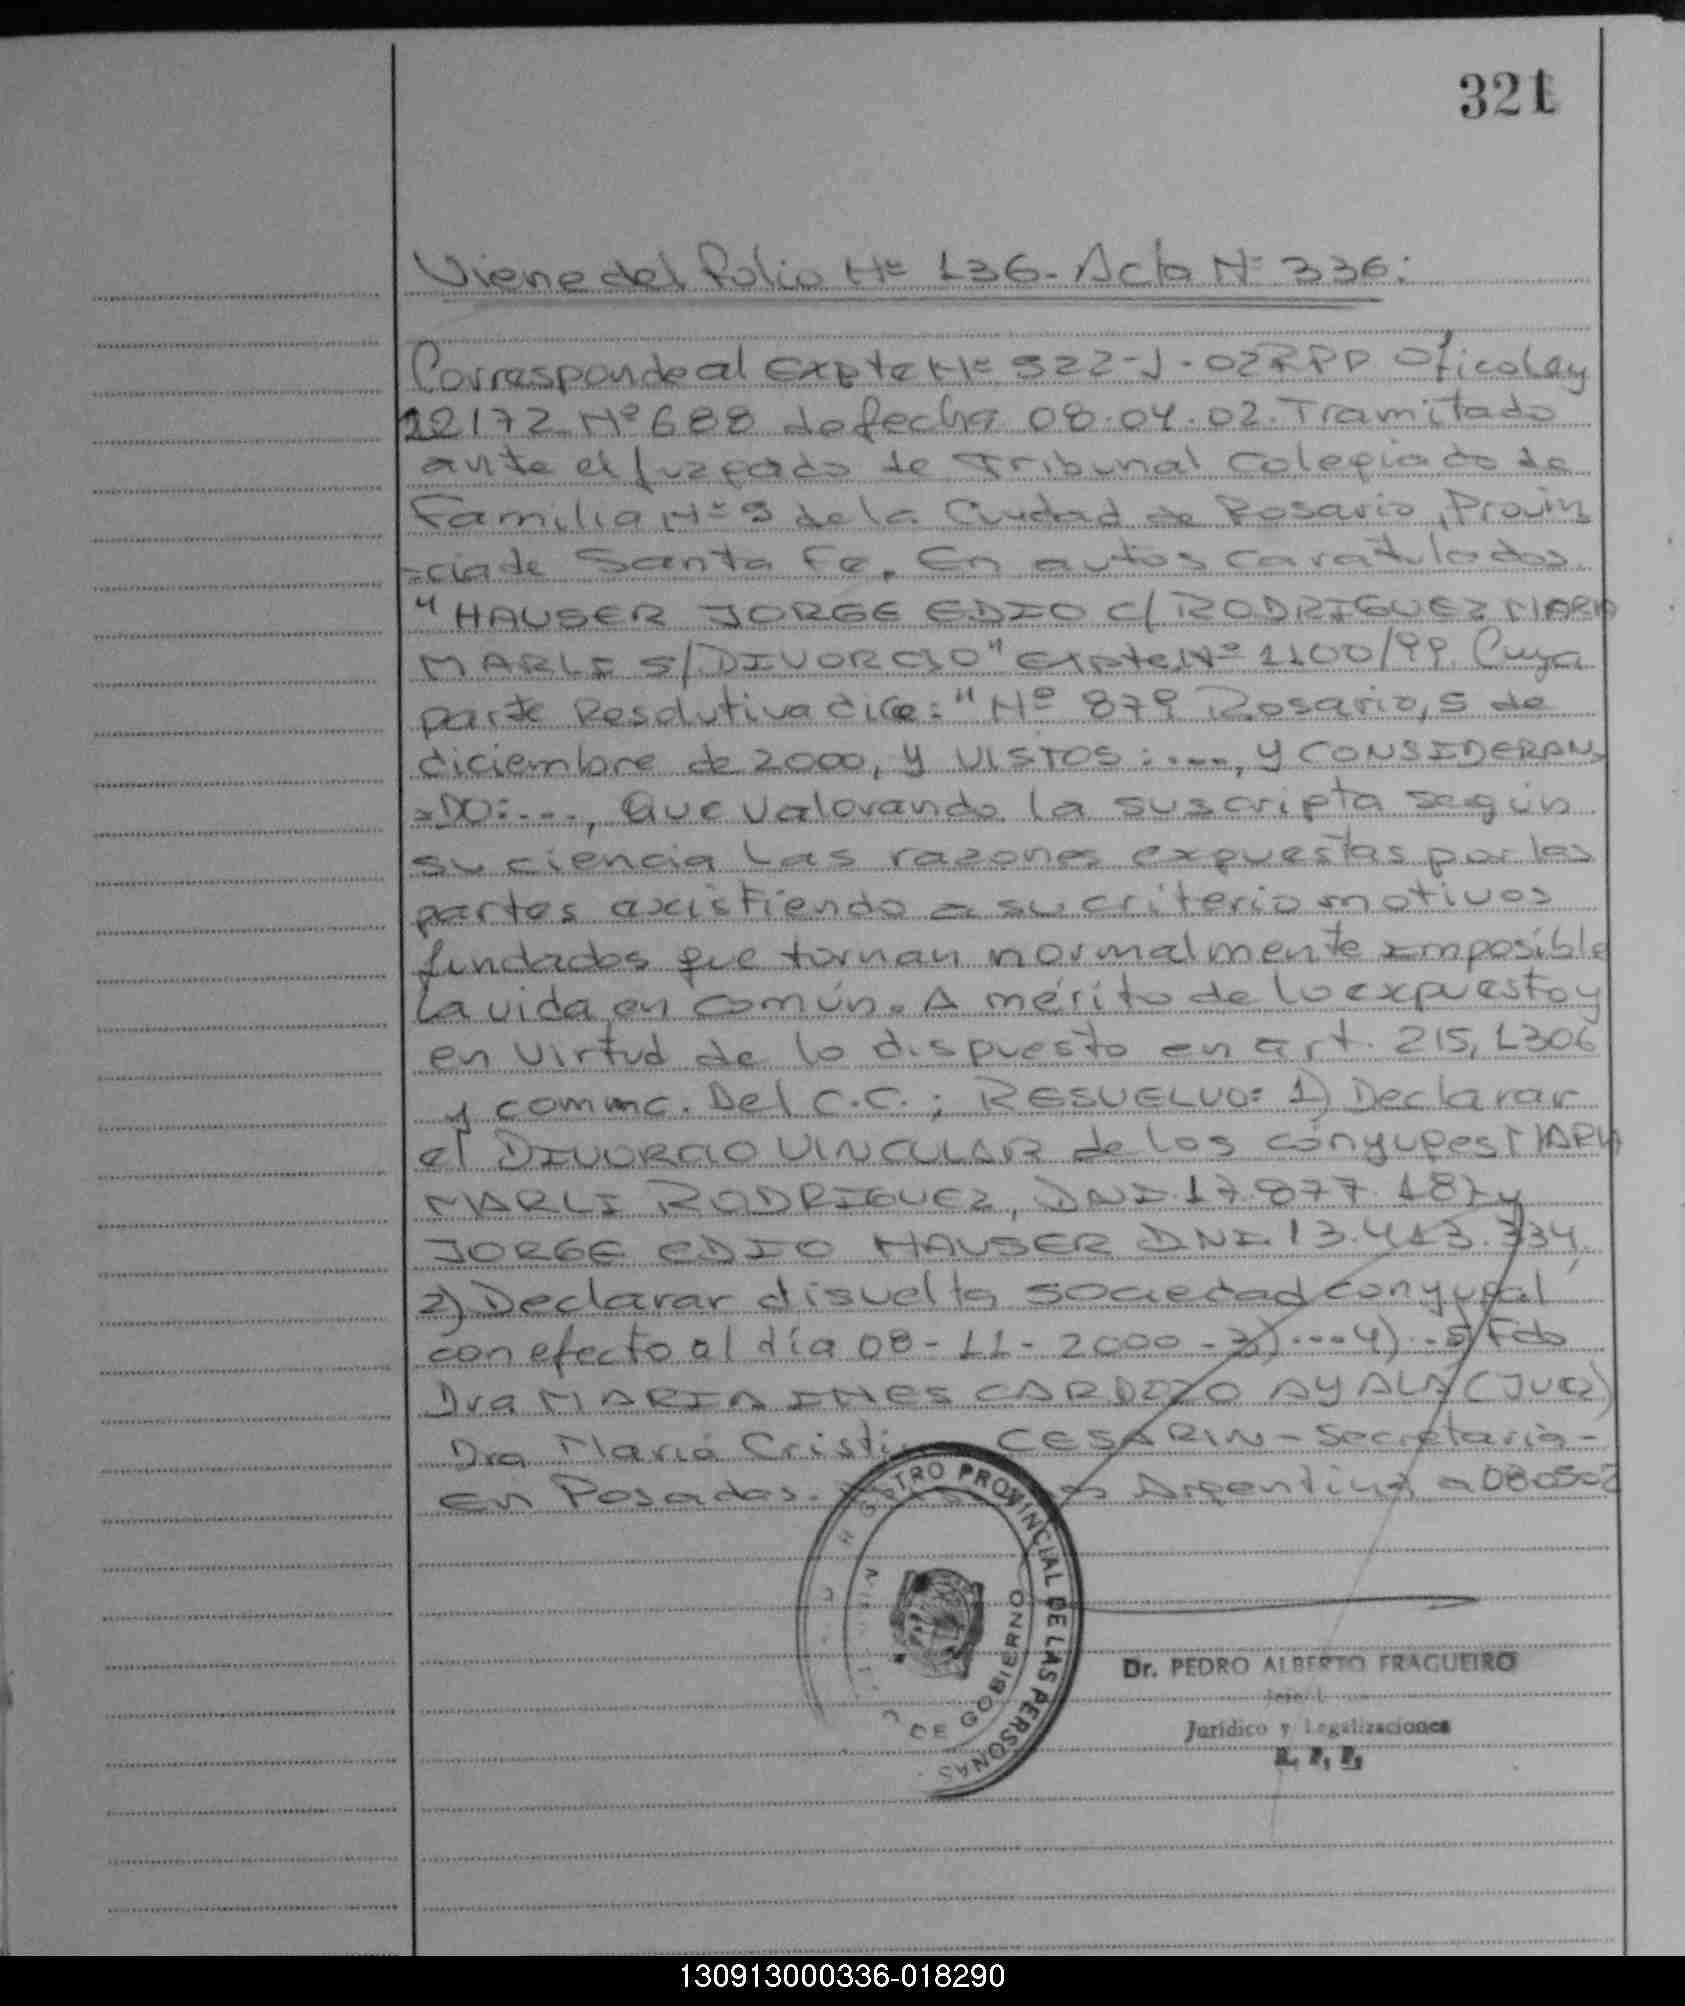 321
Viene del folio Nº 136 - Acta Nº 336:
Corresponde al Expte Nº 522-J-02 RPP Oficio Ley
22172 Nº 688 de fecha 08.04.02. Tramitado
ante el Juzgado de Tribunal Colegiado de
Familia Nº 5 de la Ciudad de Rosario, Provin
=cia de Santa Fe. En autos caratulados
"HAUSER JORGE EDIO C/ RODRIGUEZ MARIA
MARLI S/DIVORCIO" Expte Nº 1100/99. Cuya
parte Resolutiva dice: "Nº 879 Rosario, 5 de
diciembre de 2000, y VISTOS: ..., y CONSIDERAN
=DO: ..., Que valorando la suscripta según
su ciencia las razones expuestas por las
partes existiendo a su criterio motivos
fundados que tornan normalmente imposible
la vida en común. A mérito de lo expuesto y
en virtud de lo dispuesto en art. 215, 1306
y commc. Del C.C.; RESUELVO: 1) Declarar
el DIVORCIO VINCULAR de los cónyuges MARIA
MARLI RODRIGUEZ, DNI.17.877.187 y
JORGE EDIO HAUSER DNI.13.413.334,
2) Declarar disuelta sociedad conyugal
con efecto al día 08-11-2000 - 3)...4)..5) Fdo
Dra MARIA INES CARDOZO AYALA (JUEZ)
Dra María Cristina CESARIN - Secretaria -
En Posadas. Argentina, a 080502
REGISTRO PROVINCIAL DE LAS PERSONAS
DE GOBIERNO
Dr. PEDRO ALBERTO FRAGUEIRO
Jurídico y Legalizaciones
R. P. P.
130913000336-018290